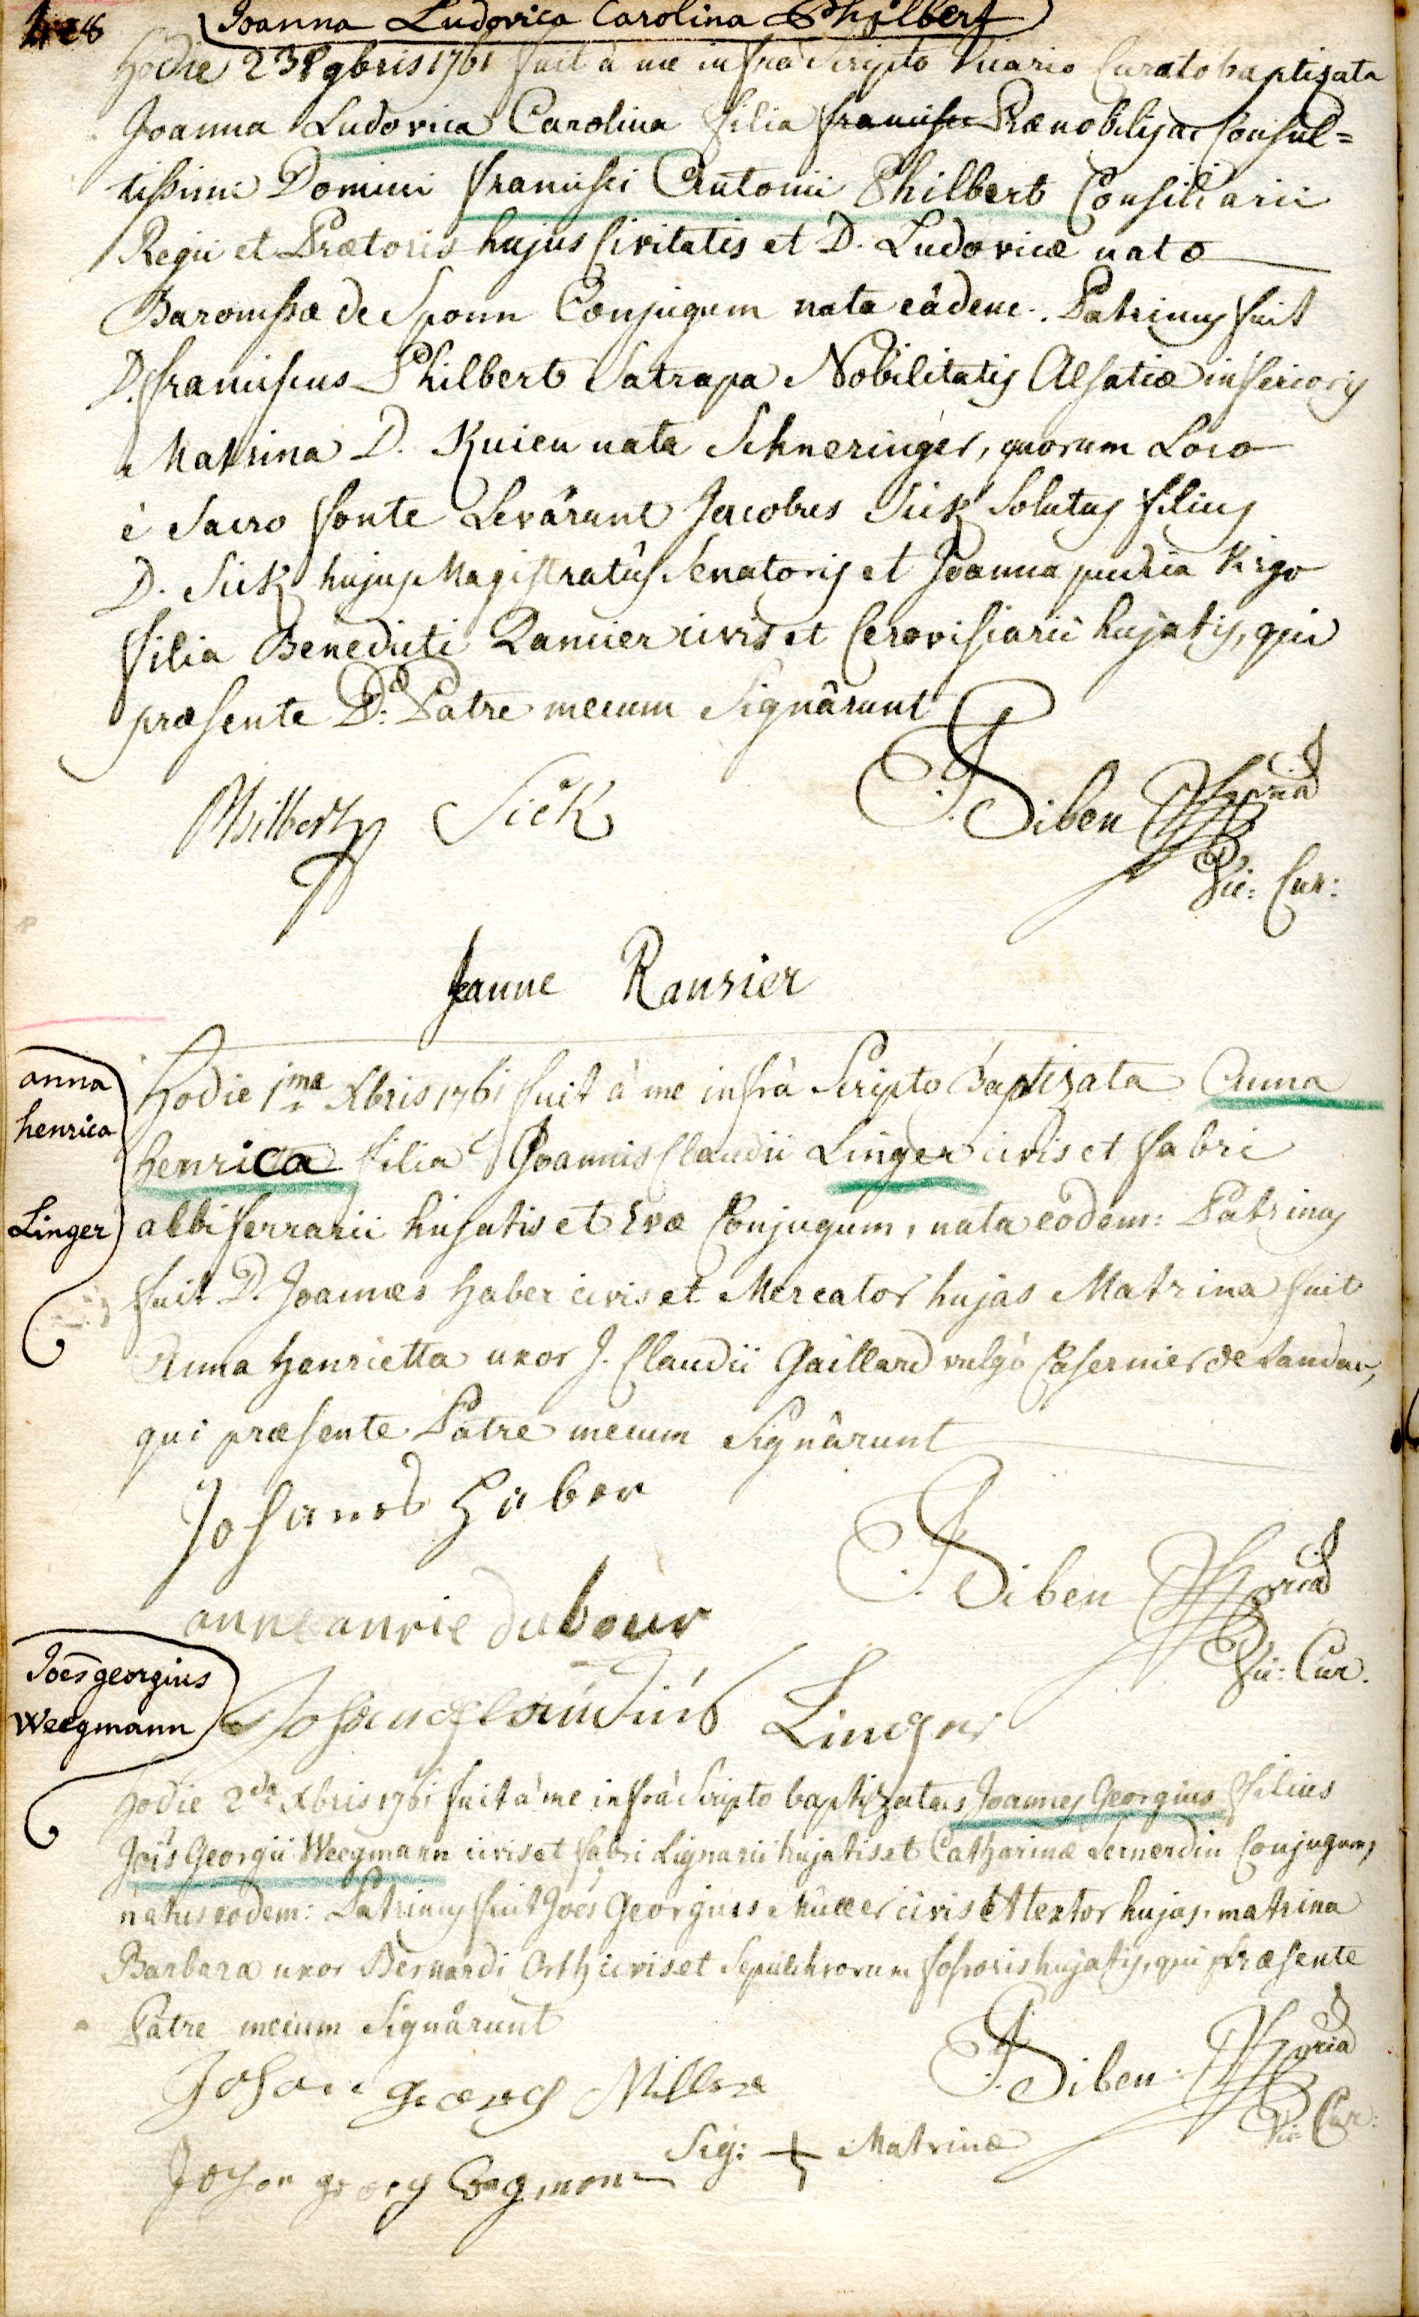 Joanna Ludovica Carolina Philbert
Hodie 23 9bris 1761 fuit à me infrà Scripto Vicario Curato baptizata
Joanna Ludovica Carolina filia Prænobilis ac Consul=
tissimi Domini francisci Antonii Philbert Consiliarii
Regii et Prætoris hujus Civitatis et D. Ludovicæ natæ
Baronissæ de Sponn Conjugum nata eâdem. Patrinus fuit
D. franciscus Philbert Satrapa Nobilitatis Alsatiæ inferioris
Matrina D. Kuien nata Schneringer, quorum Loco
è Sacro fonte Levârunt Jacobus Sick Solutus filius
D. Sick hujus Magistratûs Senatoris et Joanna pudica Virgo
filia Benedicti Ransier civis et Cerevisiarii hujatis, qui
præsente D: Patre mecum Signârunt
Philbert Sick Siben
Vic: Cur:
Jeanne Ransier
anna
henrica
Linger
Hodie 1ma Xbris 1761 fuit à me infrà Scripto Baptizata Anna
henrica filia Joannis Claudii Linger civis et fabri
albi ferrarii hujatis et Evæ Conjugum, nata eodem: Patrinus
fuit D. Joannes Haber civis et Mercator hujas Matrina fuit
Anna Henrietta uxor J. Claudii Gaillard vulgò Casernier de Landau,
qui præsente Patre mecum Signârunt
Johanes Haber
Siben
anne anrie dubour
Vic: Cur.
Joes georgius
Weegmann
Johan Claudius Linger
Hodie 2da Xbris 1761 fuit à me infrà Scripto baptizatus Joannes Georgius filius
Jois Georgii Weegmann civis et fabri Lignarii hujatis et Catharinæ Lernerdin Conjugum,
natus eodem: Patrinus fuit Joes Georgius Müller civis et textor hujas. matrina
Barbara uxor Bernardi Orth civis et Sepulchrorum fossoris hujatis, qui præsente
Patre mecum Signârunt
Siben
Johan georg Miller
Vic: Cur:
Sig: + Matrinæ
Johan georg Wegmann